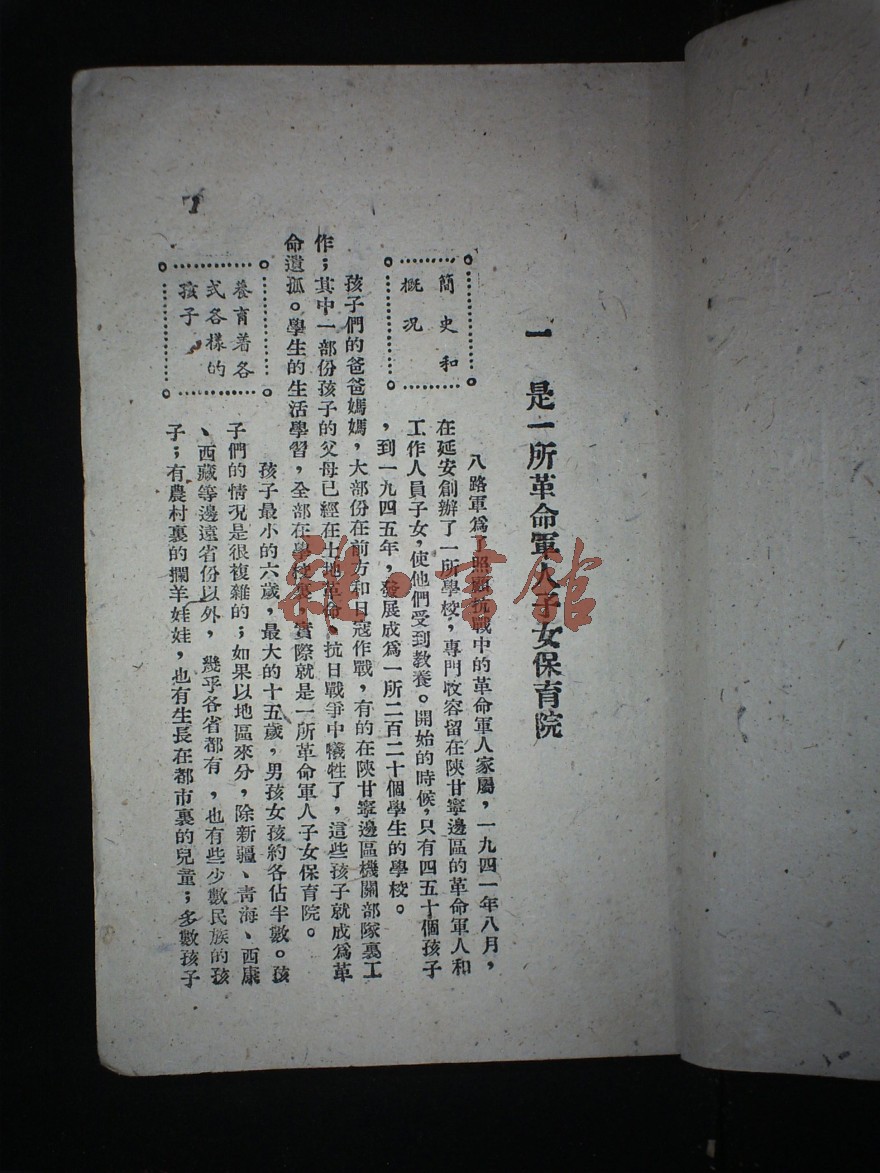 一 是一所革命軍人子女保育院
簡史和
概況
八路軍爲了照顧抗戰中的革命軍人家屬，一九四一年八月，
在延安創辦了一所學校，專門收容留在陝甘寧邊區的革命軍人和
工作人員子女，使他們受到教養。開始的時候，只有四五十個孩子
，到一九四五年，發展成爲一所二百二十個學生的學校。
孩子們的爸爸媽媽，大部份在前方和日寇作戰，有的在陝甘寧邊區機關部隊裏工
作；其中一部份孩子的父母已經在土地革命、抗日戰爭中犧牲了，這些孩子就成爲革
命遺孤。學生的生活學習，全部在學校裏，實際就是一所革命軍人子女保育院。
養育着各
式各樣的
孩子
孩子最小的六歲，最大的十五歲，男孩女孩約各佔半數。孩
子們的情況是很複雜的；如果以地區來分，除新疆、青海、西康
、西藏等邊遠省份以外，幾乎各省都有，也有些少數民族的孩
子；有農村裏的攔羊娃娃，也有生長在都市裏的兒童；多數孩子
1
雜·書館